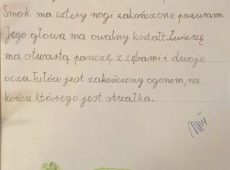 Smok ma cztery nogi zakończone pazurami.
Jego głowa ma owalny kształt. Zwierzę
ma otwartą paszczę z zębami i dwoje
oczu. Tułów jest zakończony ogonem, na
końcu którego jest strzałka.